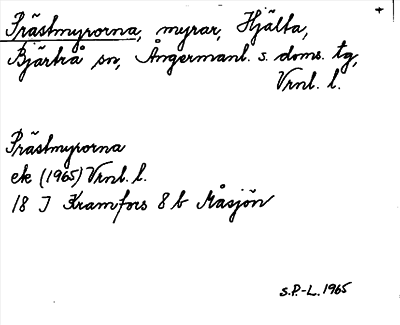 Prästmyrorna, myrar, Hjälta,
Bjärtrå sn, Ångermanl. s. doms. tg,
Vrnl. l.
Prästmyrorna
ek (1965) Vrnl. l.
18 J Kramfors 8 b Måsjön
S.P.-L. 1965